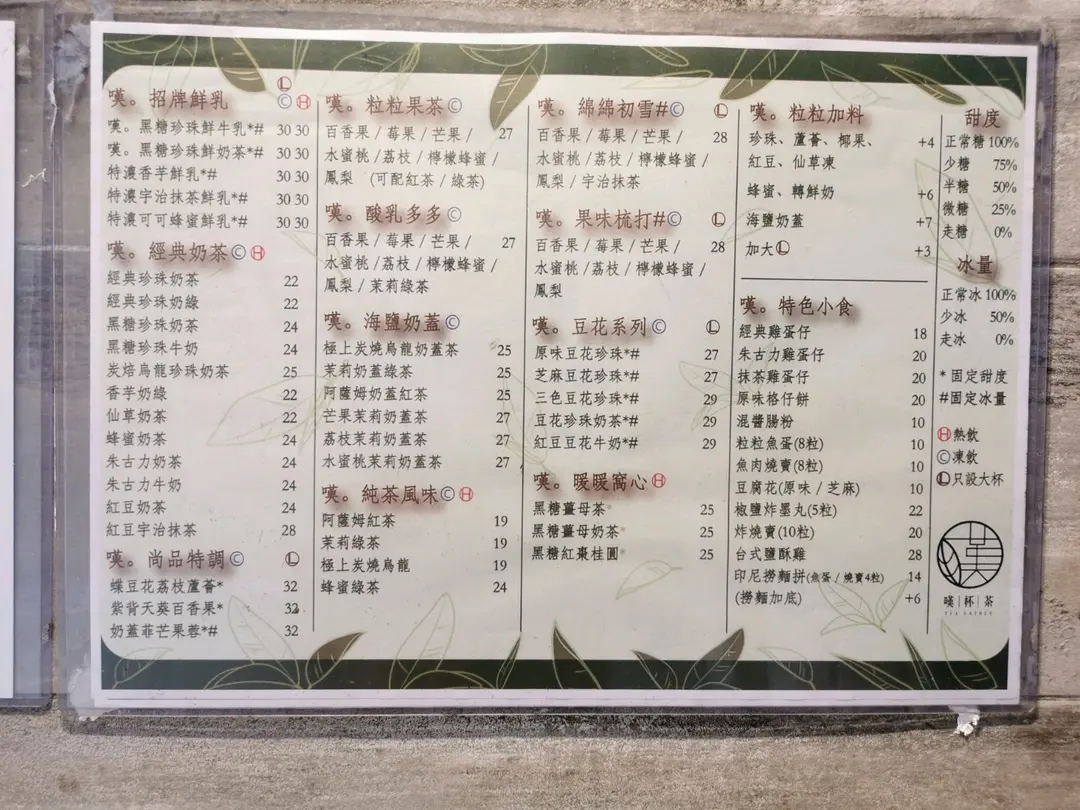 嘆。招牌鮮乳 Ⓛ
Ⓒ Ⓗ
嘆。黑糖珍珠鮮牛乳*# 30 30
嘆。黑糖珍珠鮮奶茶*# 30 30
特濃香芋鮮乳*# 30 30
特濃宇治抹茶鮮乳*# 30 30
特濃可可蜂蜜鮮乳*# 30 30
嘆。經典奶茶ⒸⒽ
經典珍珠奶茶 22
經典珍珠奶綠 22
黑糖珍珠奶茶 24
黑糖珍珠牛奶 24
炭焙烏龍珍珠奶茶 25
香芋奶綠 22
仙草奶茶 22
蜂蜜奶茶 24
朱古力奶茶 24
朱古力牛奶 24
紅豆奶茶 24
紅豆宇治抹茶 28
嘆。尚品特調Ⓒ Ⓛ
蝶豆花荔枝蘆薈* 32
紫背天葵百香果* 32
奶蓋菲芒果蓉*# 32
嘆。粒粒果茶Ⓒ
百香果 / 莓果 / 芒果 / 27
水蜜桃 / 荔枝 / 檸檬蜂蜜 /
鳳梨 (可配紅茶 / 綠茶)
嘆。酸乳多多Ⓒ
百香果 / 莓果 / 芒果 / 27
水蜜桃 / 荔枝 / 檸檬蜂蜜 /
鳳梨 / 茉莉綠茶
嘆。海鹽奶蓋Ⓒ
極上炭燒烏龍奶蓋茶 25
茉莉奶蓋綠茶 25
阿薩姆奶蓋紅茶 25
芒果茉莉奶蓋茶 27
荔枝茉莉奶蓋茶 27
水蜜桃茉莉奶蓋茶 27
嘆。純茶風味ⒸⒽ
阿薩姆紅茶 19
茉莉綠茶 19
極上炭燒烏龍 19
蜂蜜綠茶 24
嘆。綿綿初雪#Ⓒ Ⓛ
百香果 / 莓果 / 芒果 / 28
水蜜桃 / 荔枝 / 檸檬蜂蜜 /
鳳梨 / 宇治抹茶
嘆。果味梳打#Ⓒ Ⓛ
百香果 / 莓果 / 芒果 / 28
水蜜桃 / 荔枝 / 檸檬蜂蜜 /
鳳梨
嘆。豆花系列Ⓒ Ⓛ
原味豆花珍珠*# 27
芝麻豆花珍珠*# 27
三色豆花珍珠*# 29
豆花珍珠奶茶*# 29
紅豆豆花牛奶*# 29
嘆。暖暖窩心Ⓗ
黑糖薑母茶* 25
黑糖薑母奶茶* 25
黑糖紅棗桂圓* 25
嘆。粒粒加料
珍珠、蘆薈、椰果、 +4
紅豆、仙草凍
蜂蜜、轉鮮奶 +6
海鹽奶蓋 +7
加大Ⓛ +3
嘆。特色小食
經典雞蛋仔 18
朱古力雞蛋仔 20
抹茶雞蛋仔 20
原味格仔餅 20
混醬腸粉 10
粒粒魚蛋(8粒) 10
魚肉燒賣(8粒) 10
豆腐花(原味 / 芝麻) 10
椒鹽炸墨丸(5粒) 22
炸燒賣(10粒) 20
台式鹽酥雞 28
印尼撈麵拼(魚蛋 / 燒賣4粒) 14
(撈麵加底) +6
甜度
正常糖 100%
少糖 75%
半糖 50%
微糖 25%
走糖 0%
冰量
正常冰 100%
少冰 50%
走冰 0%
* 固定甜度
#固定冰量
Ⓗ熱飲
Ⓒ凍飲
Ⓛ只設大杯
嘆
嘆｜杯｜茶